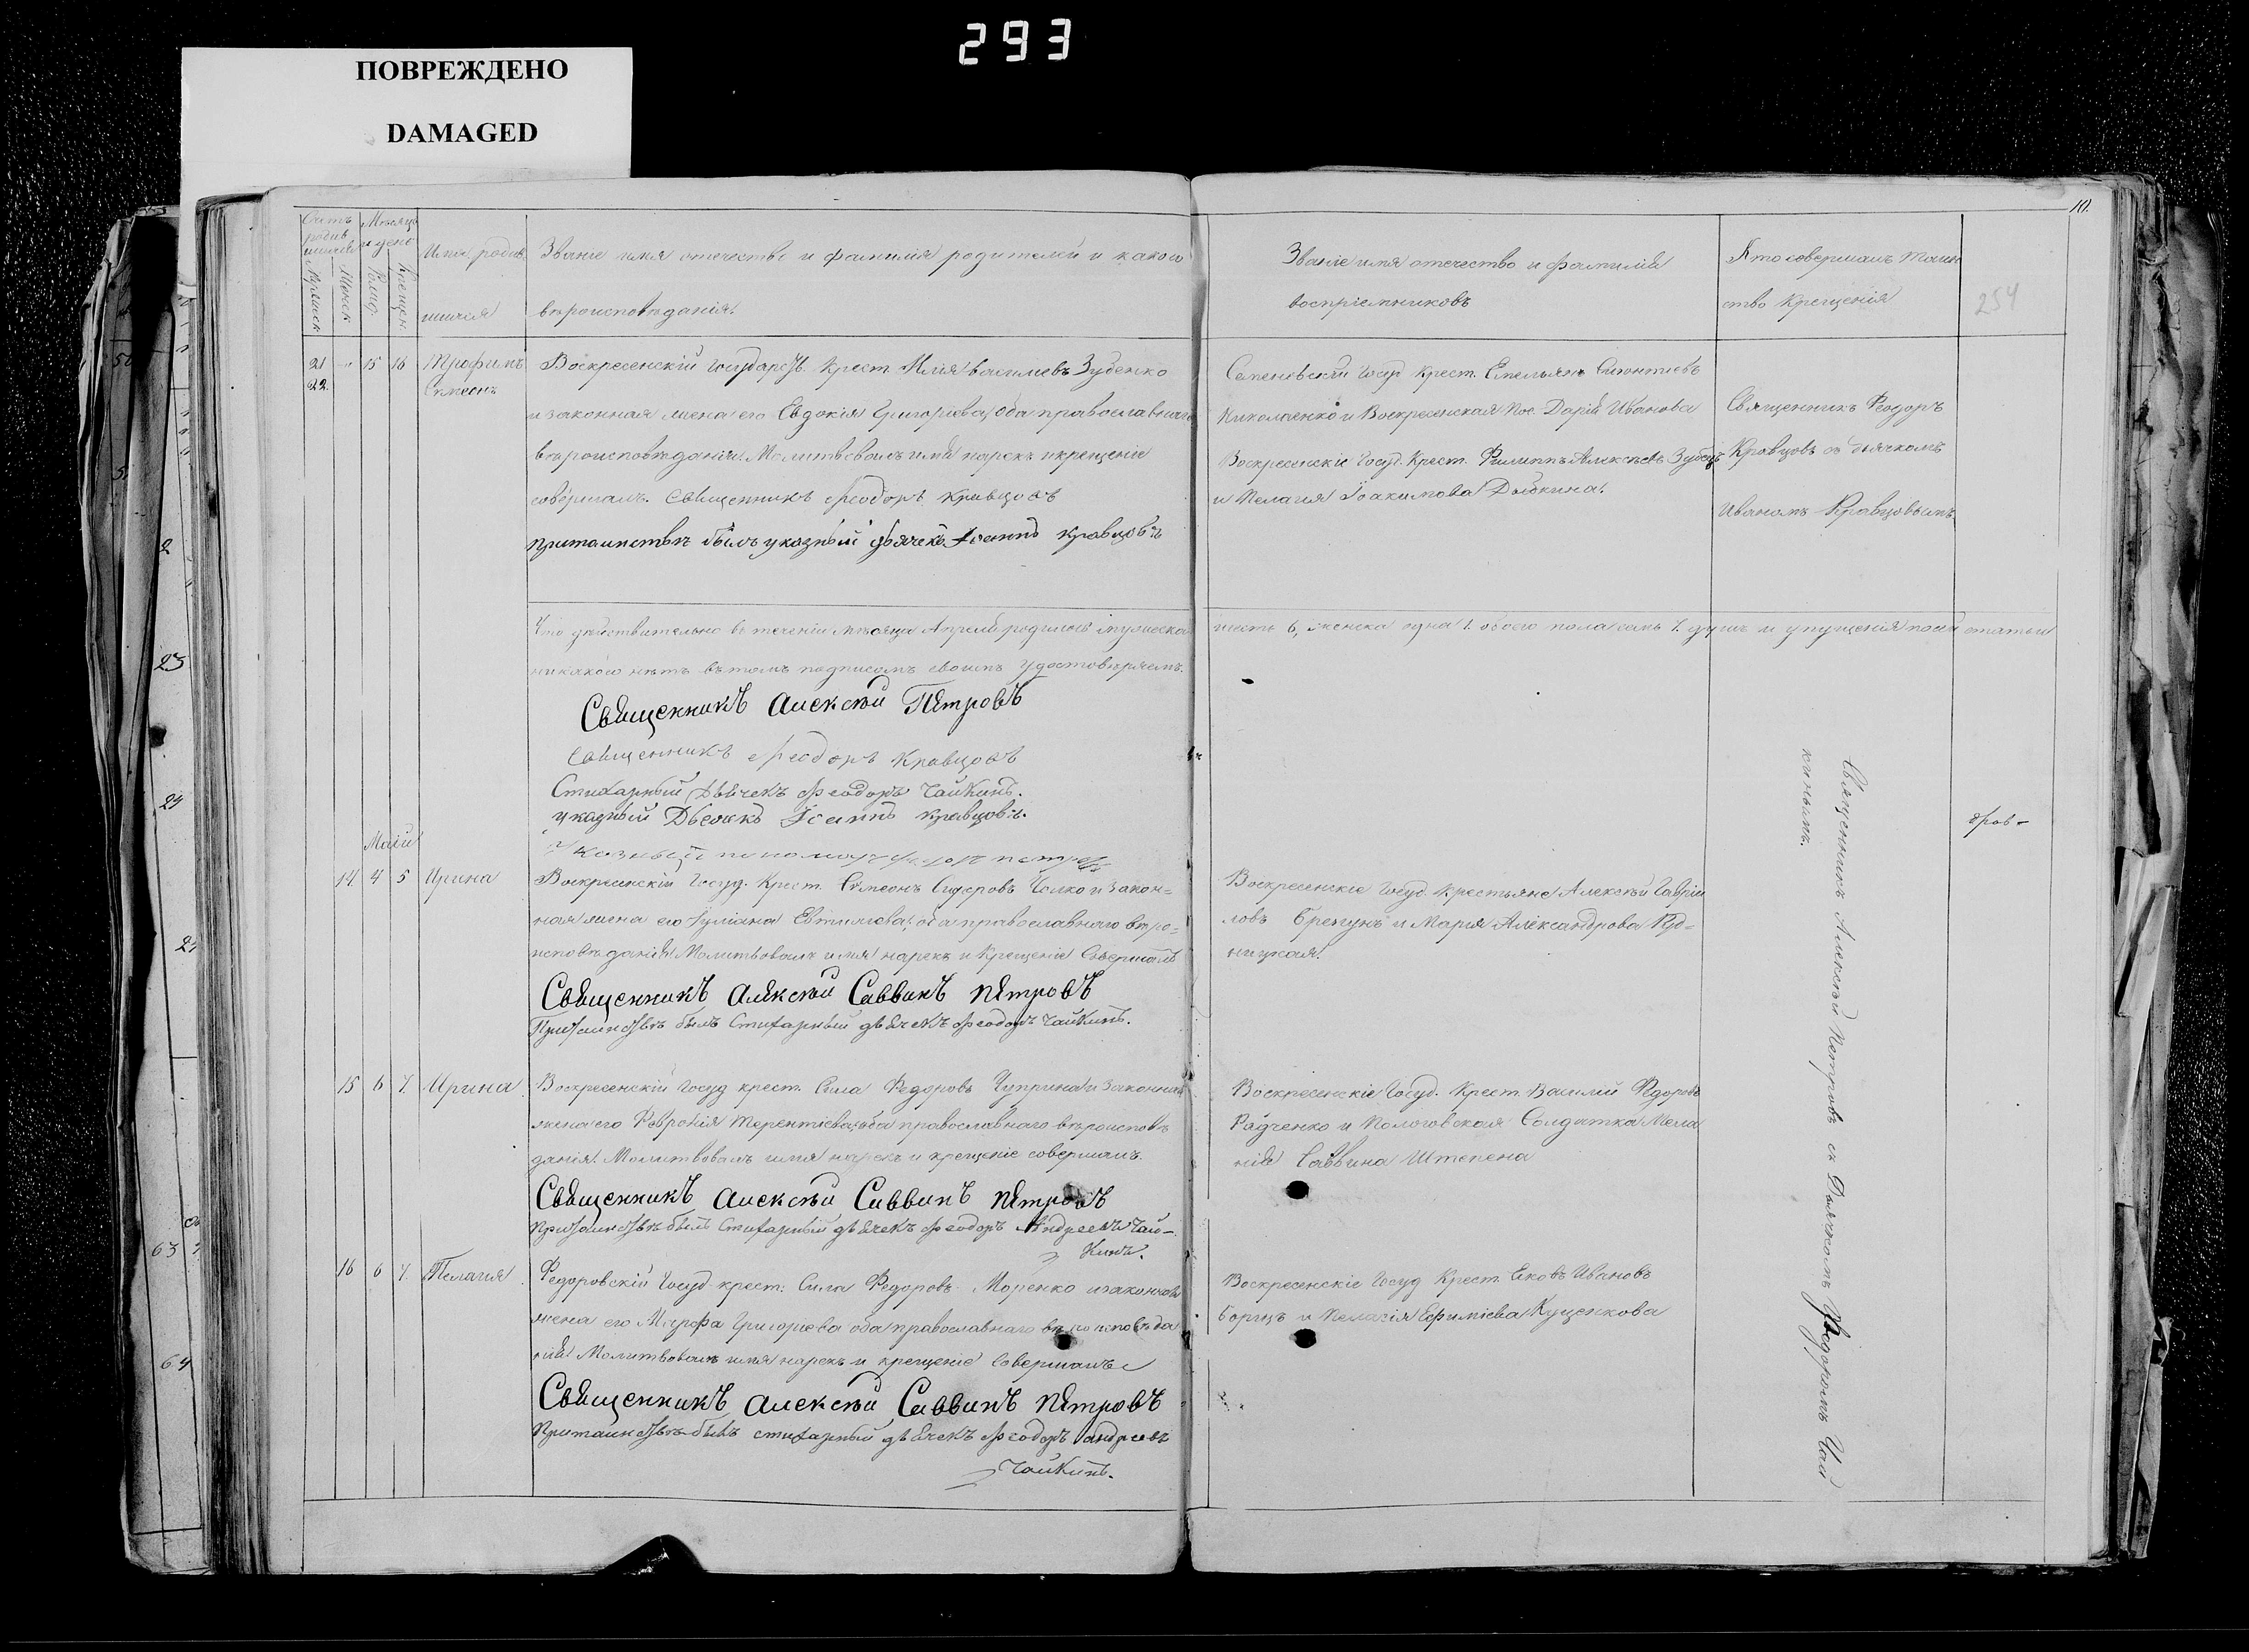 293
ПОВРЕЖДЕНО
DAMAGED
10.
254
Счетъ родив шихся
Мѣсяцъ и день
Мужеск
Женск
Рожд.
Крещен.
Имя родив
шихся
Званіе имя отечество и фамилія родителей и какого
вѣроисповѣданія.
Званіе имя отечество и фамилія
воспріемниковъ
Кто совершалъ таин
ство крещенія
21 " 15 16 Трофимъ
22 Симеонъ
Воскресенскій государств. крест. Илія Василіевъ Зубенко
и законная жена его Евдокія Григоріева, оба православнаго
вѣроисповѣданія. Молитвовалъ имя нарекъ и крещеніе
совершалъ. Священникъ Феодоръ Кравцовъ
При таинствѣ былъ указный дьячекъ Іоаннъ Кравцовъ
Семеновскій госуд крест. Емельянъ Леонтіевъ
Николаенко и Воскресенская Пос. Дарія Иванова
Воскресенскіе Госуд. Крест. Филиппъ Алексѣевъ
и Пелагия Іоакимова
Священникъ Феодоръ
Кравцовъ съ дьячкомъ
Иваномъ Кравцовымъ
Что дѣйствительно въ теченіи мѣсяца Апреля родилось мужеска шесть 6, женска одна 1. обоего пола семь 7. душъ и упущенія по сей статьи
никакого нѣтъ въ томъ подписомъ своимъ удостовѣряемъ.
Священникъ Алексѣй Пѣтровъ
Священникъ Феодоръ Кравцовъ
Стихарный Дьячекъ Феодоръ Чайкинъ.
указный Дьячекъ Іоаннъ Кравцовъ.
указный пономарь
Маій
14 4 5 Ирина
Воскресенскій Госуд. Крест. Симеонъ Сидоровъ и закон=
ная жена его Іуліана оба православнаго вѣро=
исповѣданія. Молитвовалъ имя нарекъ и Крещеніе Совершалъ
Священникъ Алексѣй Саввинъ Пѣтровъ
При таинствѣ былъ Стихарный дьячекъ Феодоръ Чайкинъ.
Воскресенскіе Госуд. крестьяне Алексѣй Гавріи
ловъ и Мария Александрова Руд=
ницкая.
15 6 7. Ирина.
Воскресенскій Госуд крест. Сила Федоровъ Чуприна и законная
жена его Февронія Терентіева, оба православнаго вѣроисповѣ
данія. Молитвовалъ имя нарекъ и крещеніе совершалъ.
Священникъ Алексѣй Саввинъ Пѣтровъ
При таинствѣ былъ Стихарный дьячекъ Феодоръ Андреевъ Чай-
Кинъ.
Воскресенскіе Госуд. Крест. Василій Федоровъ
Радченко и Пологовская Солдатка Мела
нія Саввина Штепена
16 6 7. Пелагия.
Федоровскій Госуд. крест. Сила Федоровъ Моренко и законная
жена его Марфа Григориева оба православнаго вѣроисповѣда
нія Молитвовалъ имя нарекъ и крещеніе Совершалъ
Священникъ Алексѣй Саввинъ Пѣтровъ
При таинствѣ былъ стихарный дьячекъ Феодоръ Андреевъ
Чайкинъ.
Воскресенскіе Госуд Крест. Іяковъ Ивановъ
Борщъ и Пелагія Ефиміева Куценкова
Священникъ Алексѣй Петровъ съ Дьячкомъ Феодоромъ Чай
кинымъ.